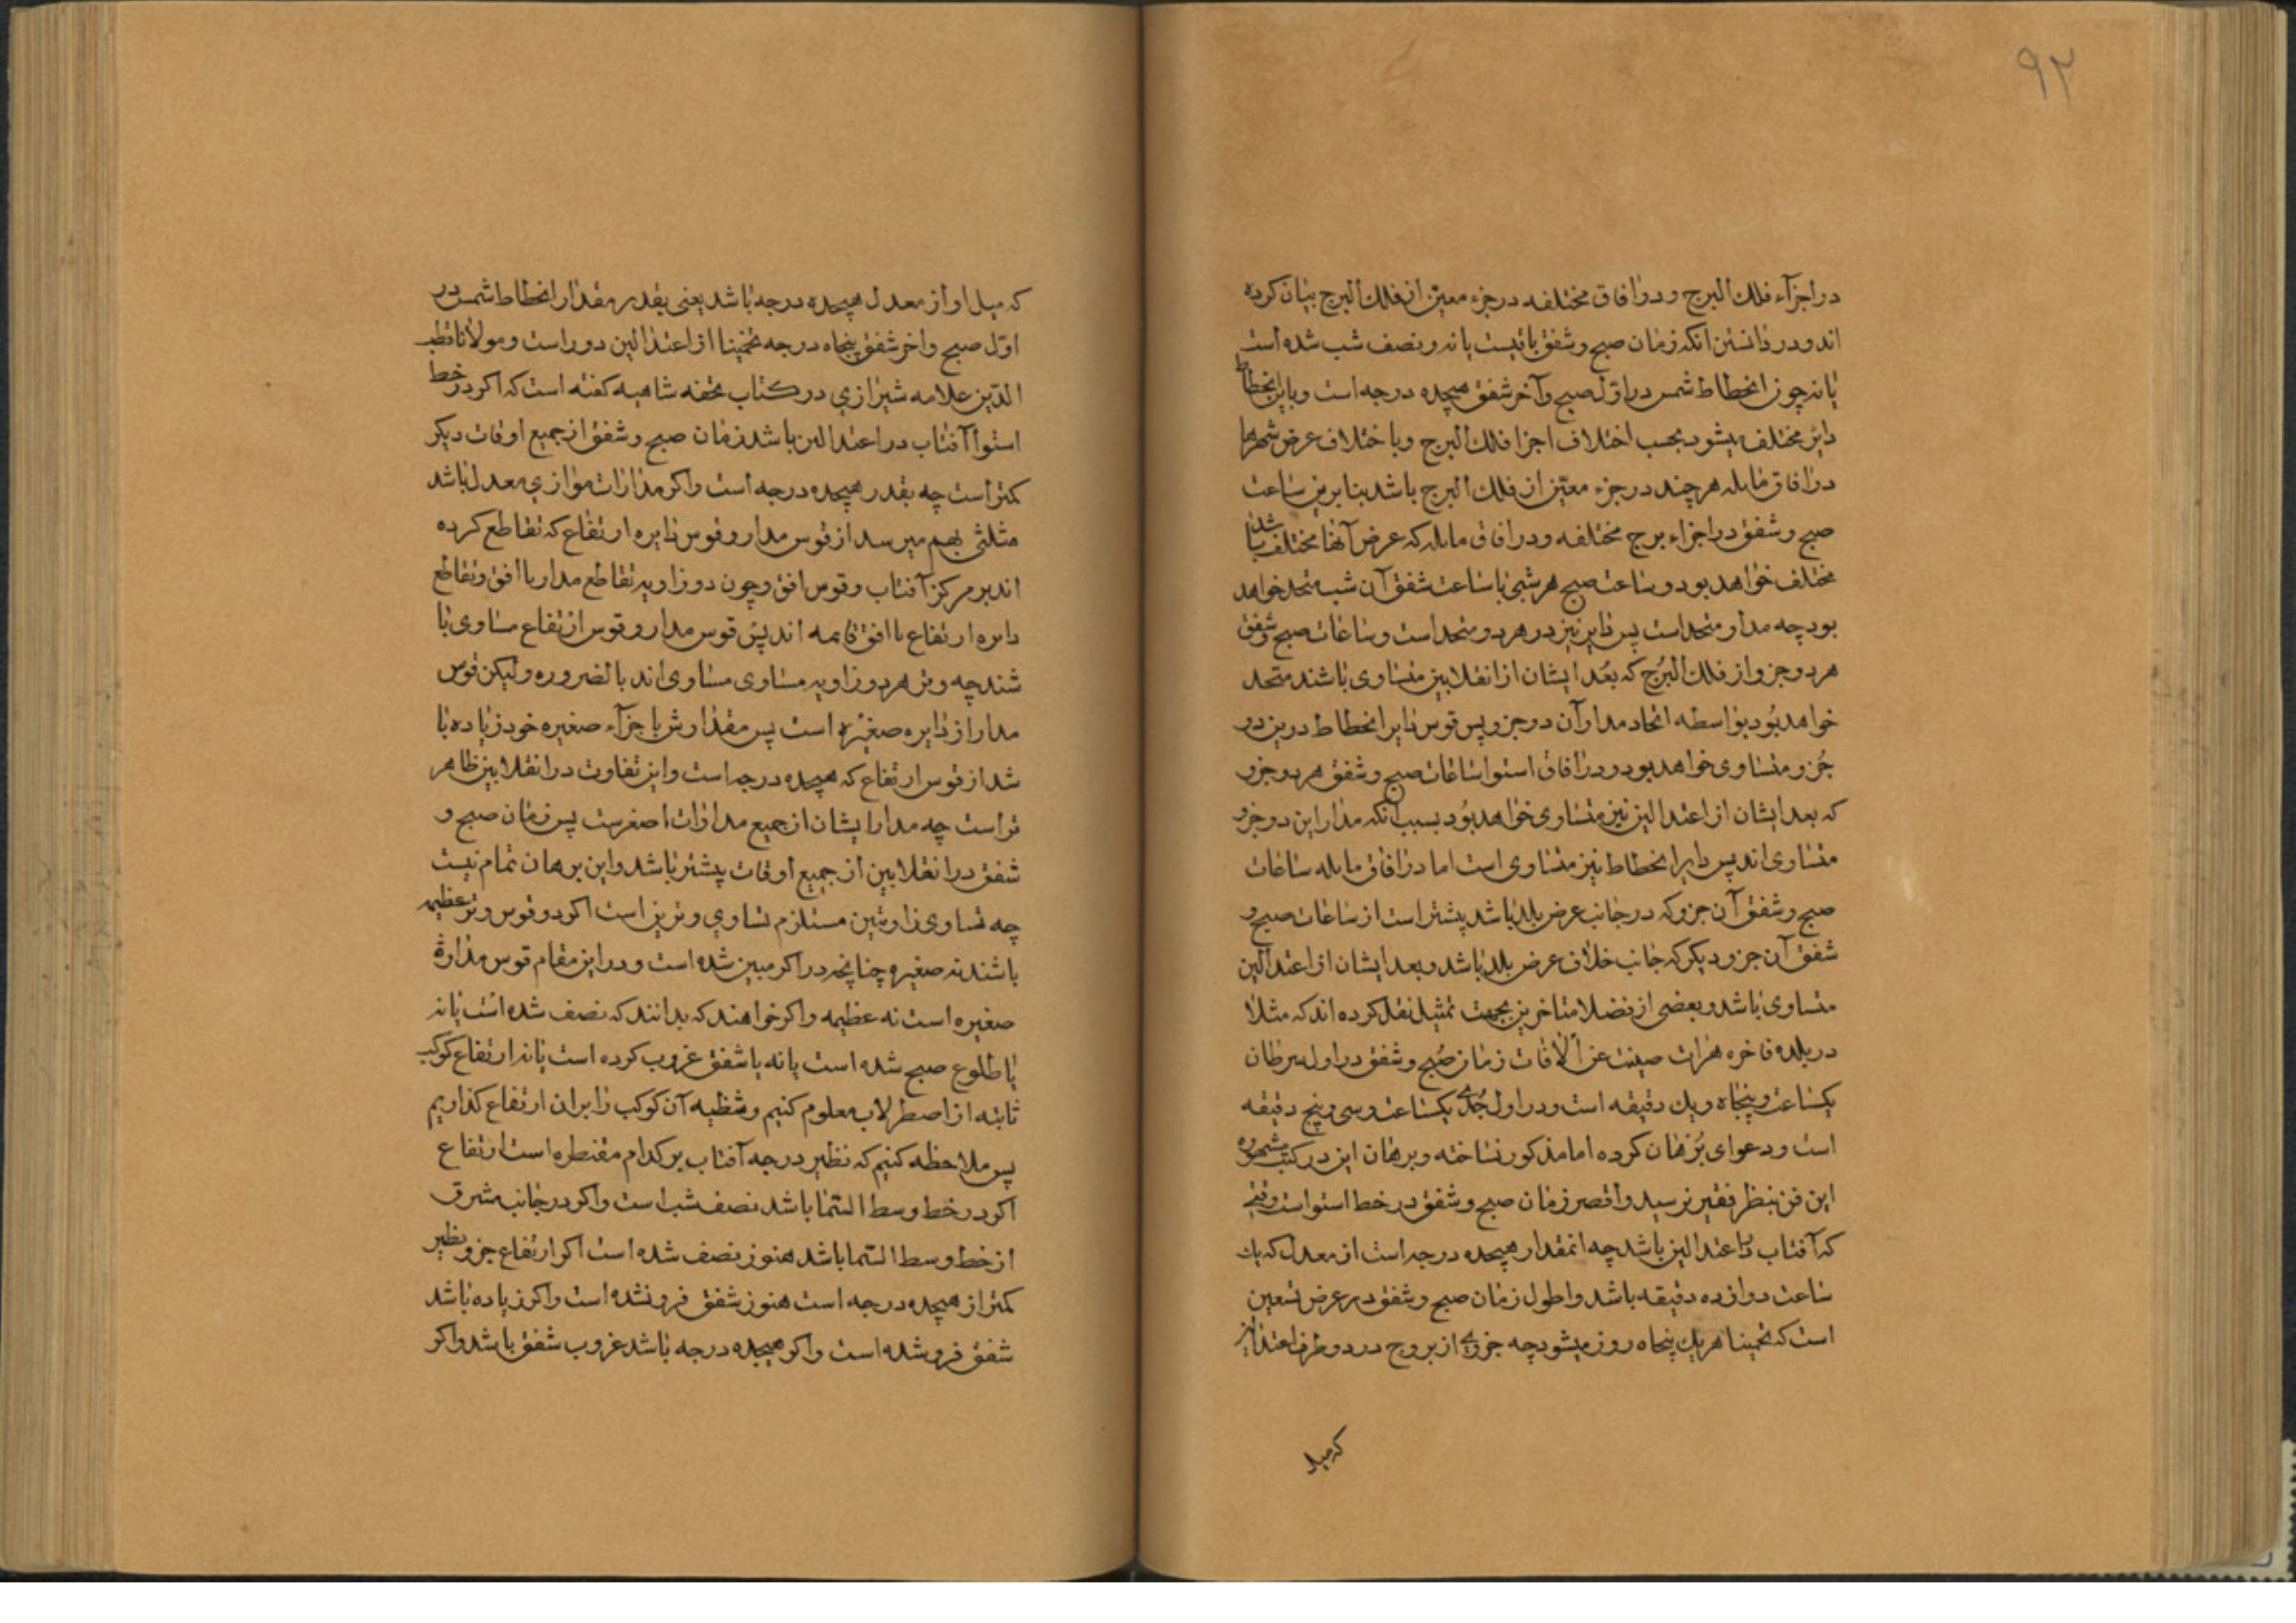 ۹۲
در اجزآء فلك البرج و در افاق مختلفه در جزء معین از فلك البرج بیان کرده
اند و در دانستن انکه زمان صبح و شفق باقیست یا نه و نصف شب شده است
یا نه چون انحطاط شمس در اوّل صبح و آخر شفق هیجده درجه است و دایر انحطاط
دایر مختلف میشود بحسب اختلاف اجزا فلك البرج و با ختلاف عرض شهرها
در افاق مایله هر چند در جزء معیّن از فلك البرج باشد بنابرین ساعت
صبح و شفق در اجزاء برج مختلفه و در افاق مایله که عرض آنها مختلف باشد
مختلف خواهد بود و ساعت صبح هر شبی با ساعت شفق آن شب متحد خواهد
بود چه مدار متحد است پس دایر نیز در هر دو متحد است و ساعات صبح و شفق
هر دو جزو از فلك البرُج که بعُد ایشان از انقلابین متساوی باشند متحد
خواهد بُود بواسطه اتحاد مدار آن در جزو پس قوس دایر انحطاط درین دو
جُزو متساوی خواهد بود و در افاق استوا ساعات صبح و شفق هر دو جزو
که بعد ایشان از اعتدالین نیز متساوی خواهد بوُد بسبب آنکه مدار این دو جزو
متساوی اند پس دایر انحطاط نیز متساوی است اما در افاق مایله ساعات
صبح و شفق آن جزو که در جانب عرض بلد باشد پیشتر است از ساعات صبح و
شفق آن جزو دیکر که جانب خلاف عرض بلد باشد و بعد ایشان از اعتدالین
متساوی باشد و بعضی از فضلا متاخرین بجهت تمثیل نقل کرده اند که مثلا
در بلده فاخره هرات صینت عن الافات زمان صُبح و شفق در اول سرطان
یکساعت و پنجاه و یك دقیقه است و در اول جُدی یکساعت و سی و پنج دقیقه
است و دعوای بُرهان کرده اما مذکور نساخته و برهان این در کتب مشهوره
این فن بنظر فقیر نرسید و اقصر زمان صبح و شفق در خط استواست وقتی
که آفتاب در اعتدالین باشد چه انمقدار هیجده درجه است از معدل که یك
ساعت دوازده دقیقه باشد و اطول زمان صبح و شفق در عرض تسعین
است که تخمینا هر یك پنجاه روز میشود چه جزوی از بروج در دو طرف اعتدالین
که میل
که میل او از معدل هیجده درجه باشد یعنی بقدر مقدار انحطاط شمس در
اوّل صبح و اخر شفق پنجاه درجه تخمینا از اعتدالین دور است و مولانا قطب
الدّین علامه شیرازی در کتاب تحفه شاهیه کفته است که اکر در خط
استوا آفتاب در اعتدالین باشد زمان صبح و شفق از جمیع اوقات دیکر
کمتر است چه بقدر هیجده درجه است و اکر مدارات موازی معدل باشد
مثلثی بهم میرسد از قوس مدار و قوس دایره ارتفاع که تقاطع کرده
اند بر مرکز آفتاب و قوس افق و چون دو زاویه تقاطع مدار با افق و تقاطع
دایره ارتفاع با افق قایمه اند پس قوس مدار و قوس ارتفاع مساوی با
شند چه وتر هر دو زاویه مساوی مساوی اند بالضروره ولیکن قوس
مدار از دایره صغیره است پس مقدارش باجزآء صغیره خود زیاده با
شد از قوس ارتفاع که هیجده درجه است و این تفاوت در انقلابین ظاهر
تر است چه مدار ایشان از جمیع مدارات اصغرست پس زمان صبح و
شفق در انقلابین از جمیع اوقات پیشتر باشد و این برهان تمام نیست
چه تساوی زاوتین مستلزم تساوی وترین است اکر دو قوس وتر عظیمه
باشند نه صغیره چنانچه در اکر مبین شده است و در این مقام قوس مداره
صغیره است نه عظیمه و اکر خواهند که بدانند که نصف شده است یا نه
یا طلوع صبح شده است یا نه یا شفق غروب کرده است یا نه ارتفاع کوکب
ثابته از اصطرلاب معلوم کنیم و شظیه آن کوکب را بران ارتفاع کذاریم
پس ملاحظه کنیم که نظیر درجه آفتاب بر کدام مقنطره است ارتفاع
اکر در خط وسط السّما باشد نصف شب است و اکر در جانب مشرق
از خط وسط السّما باشد هنوز نصف شده است اکر ارتفاع جزو نظیر
کمتر از هیجده درجه است هنوز شفق فرو نشده است و اکر زیاده باشد
شفق فرو شده است و اکر هیجده درجه باشد غروب شفق باشد و اکر